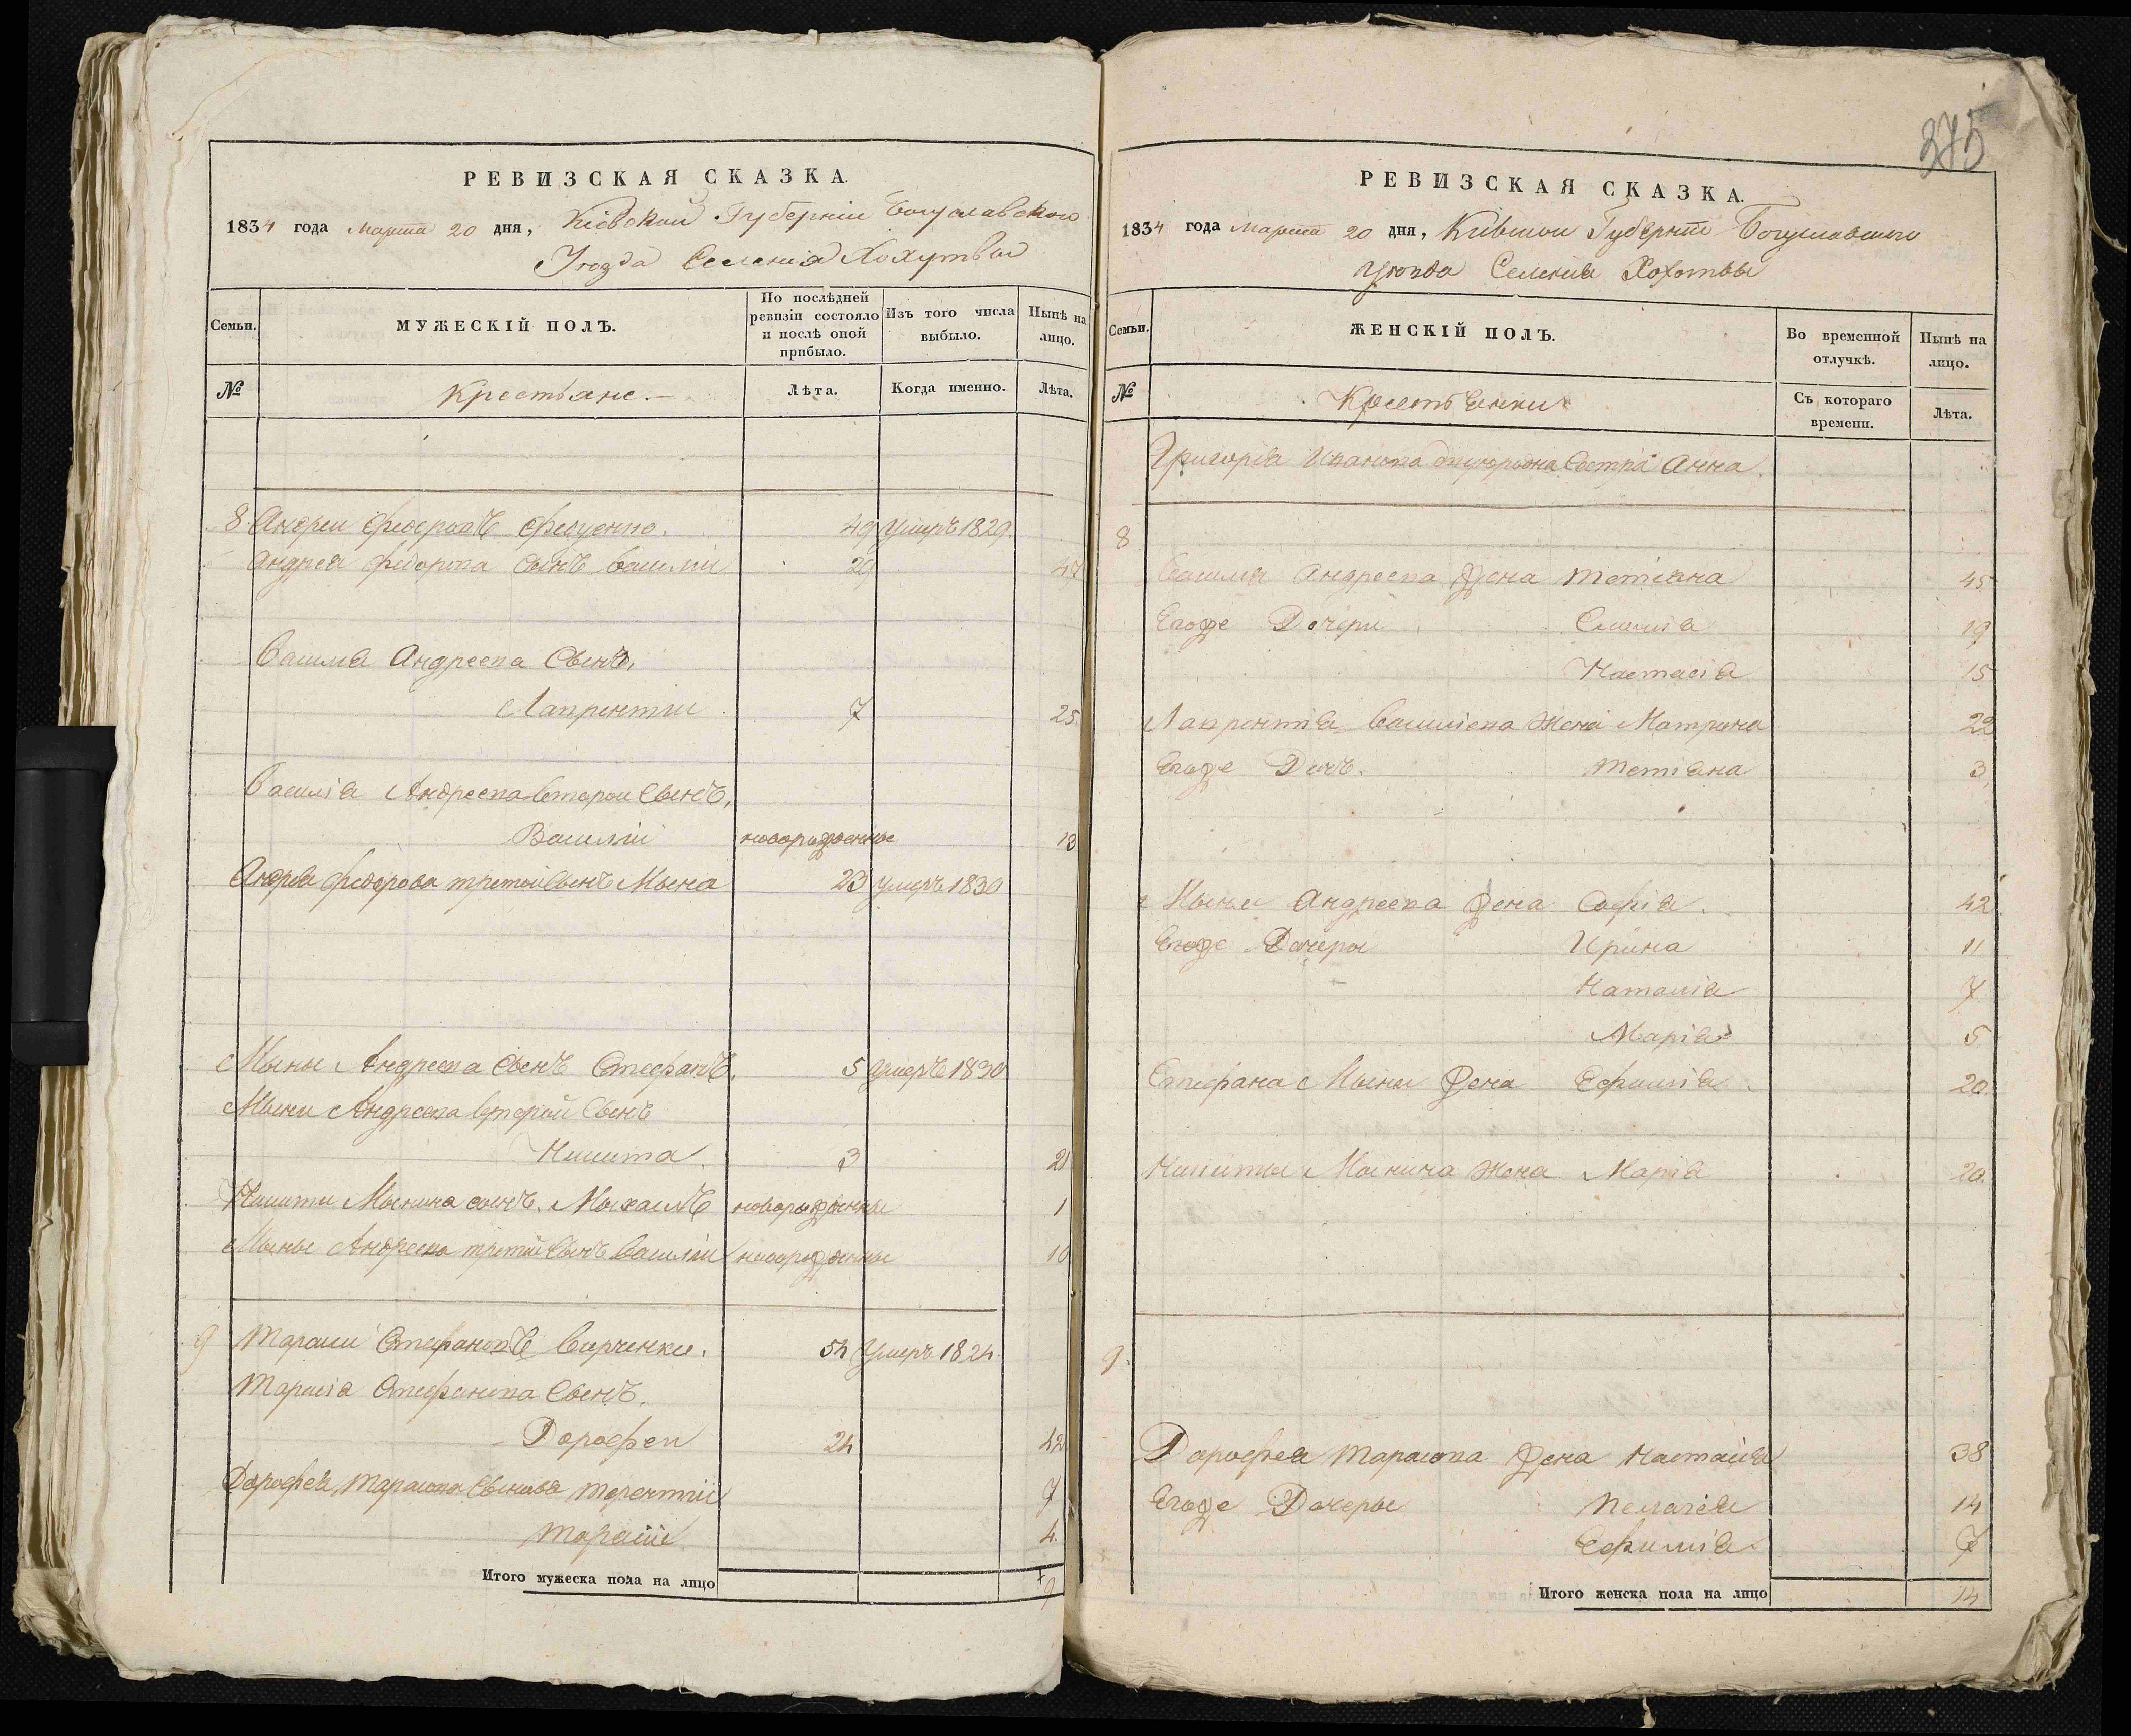 РЕВИЗСКАЯ СКАЗКА.
1834 года марта 20 дня, Кіевской Губерніи Богуславского
Уезда Селенія Хохутвы
Семьи.
МУЖЕСКІЙ ПОЛЪ.
По послѣдней ревизіи состояло и послѣ оной прибыло.
Изъ того числа выбыло.
Нынѣ на лицо.
№
Крестьяне.
Лѣта.
Когда именно.
Лѣта.
8 Андреи Федоровъ 49 умеръ 1829.
Андрея Федорова Сынъ Василіи 29 47
Василія Андреева Сынъ,
Лаврентіи 7 25
Василія Андреева второи Сынъ,
Василіи новорожденные 13
Андрея Федорова третой Сынъ Мына 23 умеръ 1830
Мыны Андреева Сынъ Стефанъ. 5 умеръ 1830
Мыни Андреева второй Сынъ
Никита 3 21
Никиты Мынина сынъ. Михаилъ новорожденные 1
Мыны Андреева третій Сынъ Василіи новорожденные 10
9 Тарасіи Стефановъ 54 Умеръ 1824
Тарасія Стефанова Сынъ.
Дорофеи 24 42
Дорофея Тарасова Сыновя Терентіи 7
Тарасіи. 4.
Итого мужеска пола на лицо 9
375
РЕВИЗСКАЯ СКАЗКА.
1834 года марта 20 дня, Кивской Губерніи Богуславского
уезда Селенія Хохотвы
Семьи.
ЖЕНСКІЙ ПОЛЪ.
Во временной отлучкѣ.
Нынѣ на лицо.
№
Крестьянки
Съ котораго времени.
Лѣта.
Григорія Иванова двуюродна Сестра Анна
8
Василія Андреева Жена Тетіана 45
Егоже Дочери 19
Настасія 15
Лаврентія Василіева Жена Матрина 22
Егоже Дочъ. Тетіана 3
Мыны Андреева Жена Софія. 42
Егоже Дочеры Ирина 11
Наталія 7
Марія 5
Стефана Мыни Жена Ефимія. 20.
Никиты Мынина Жена Марія 20.
9.
Дорофея Тарасова Жена Настасія 38
Егоже Дочеры Пелагія 14
Ефимія 7
Итого женска пола на лицо 14